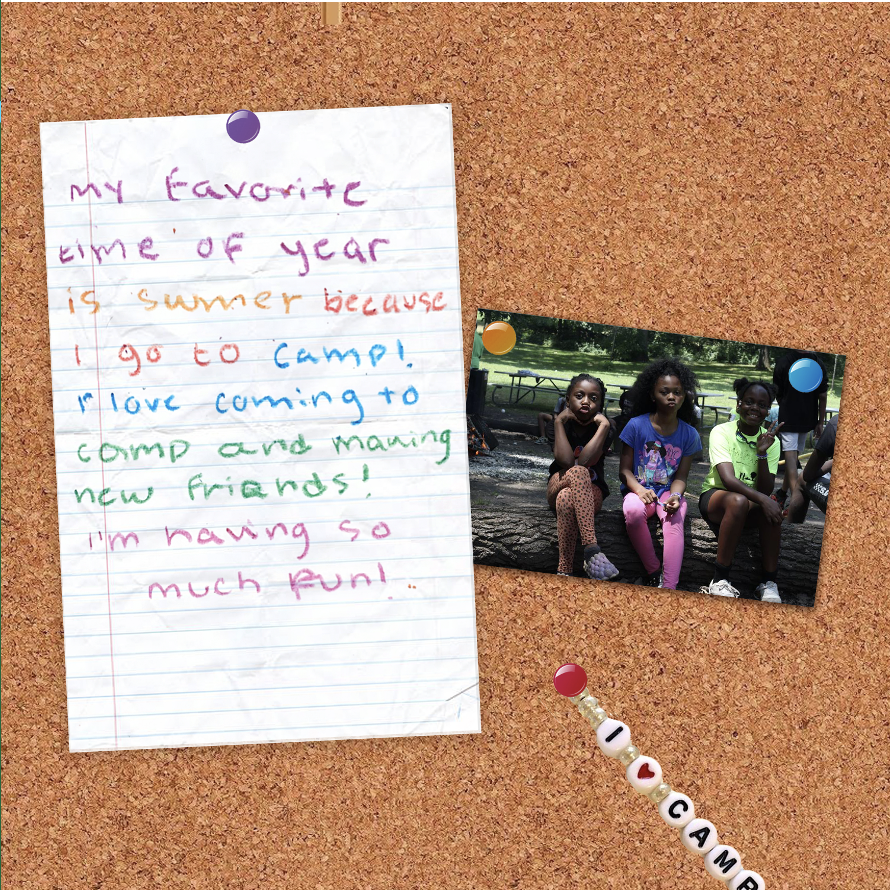 my favorite
time of year
is summer because
I go to camp!
I love coming to
camp and making
new friends!
I'm having so
much fun!
I ♥ CAMP